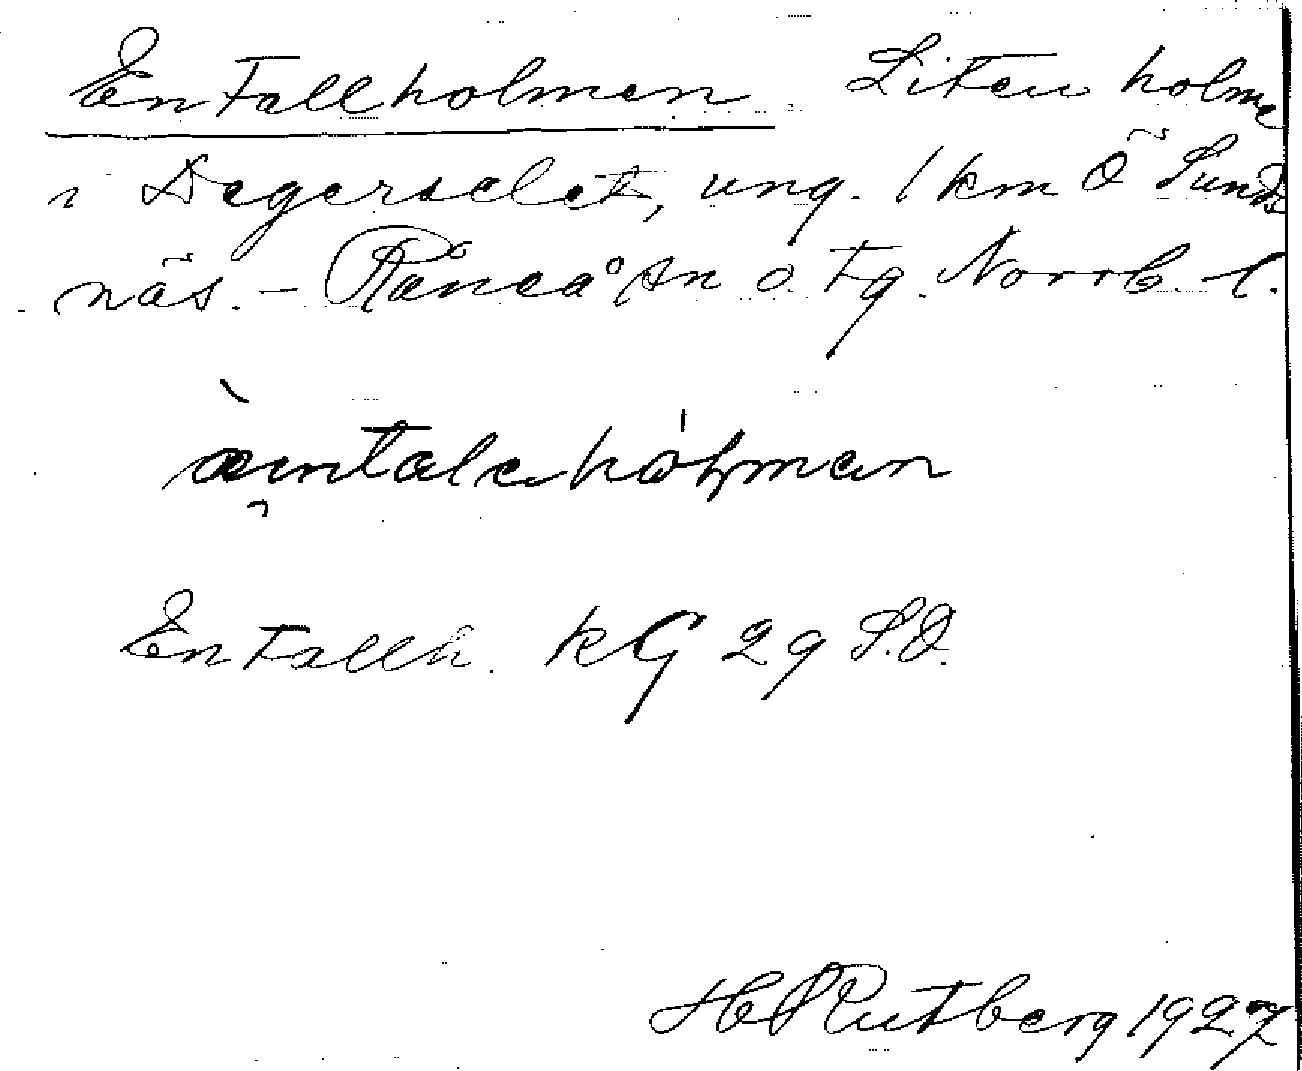 Entallholmen. Liten holme
i Degerselet, ung. 1 km Ö Sunds
näs. – Råneå sn o. tg. Norrb. l.
æntalehòḷmen
Entallh. KG 29 S.O.
H Rutberg 1927